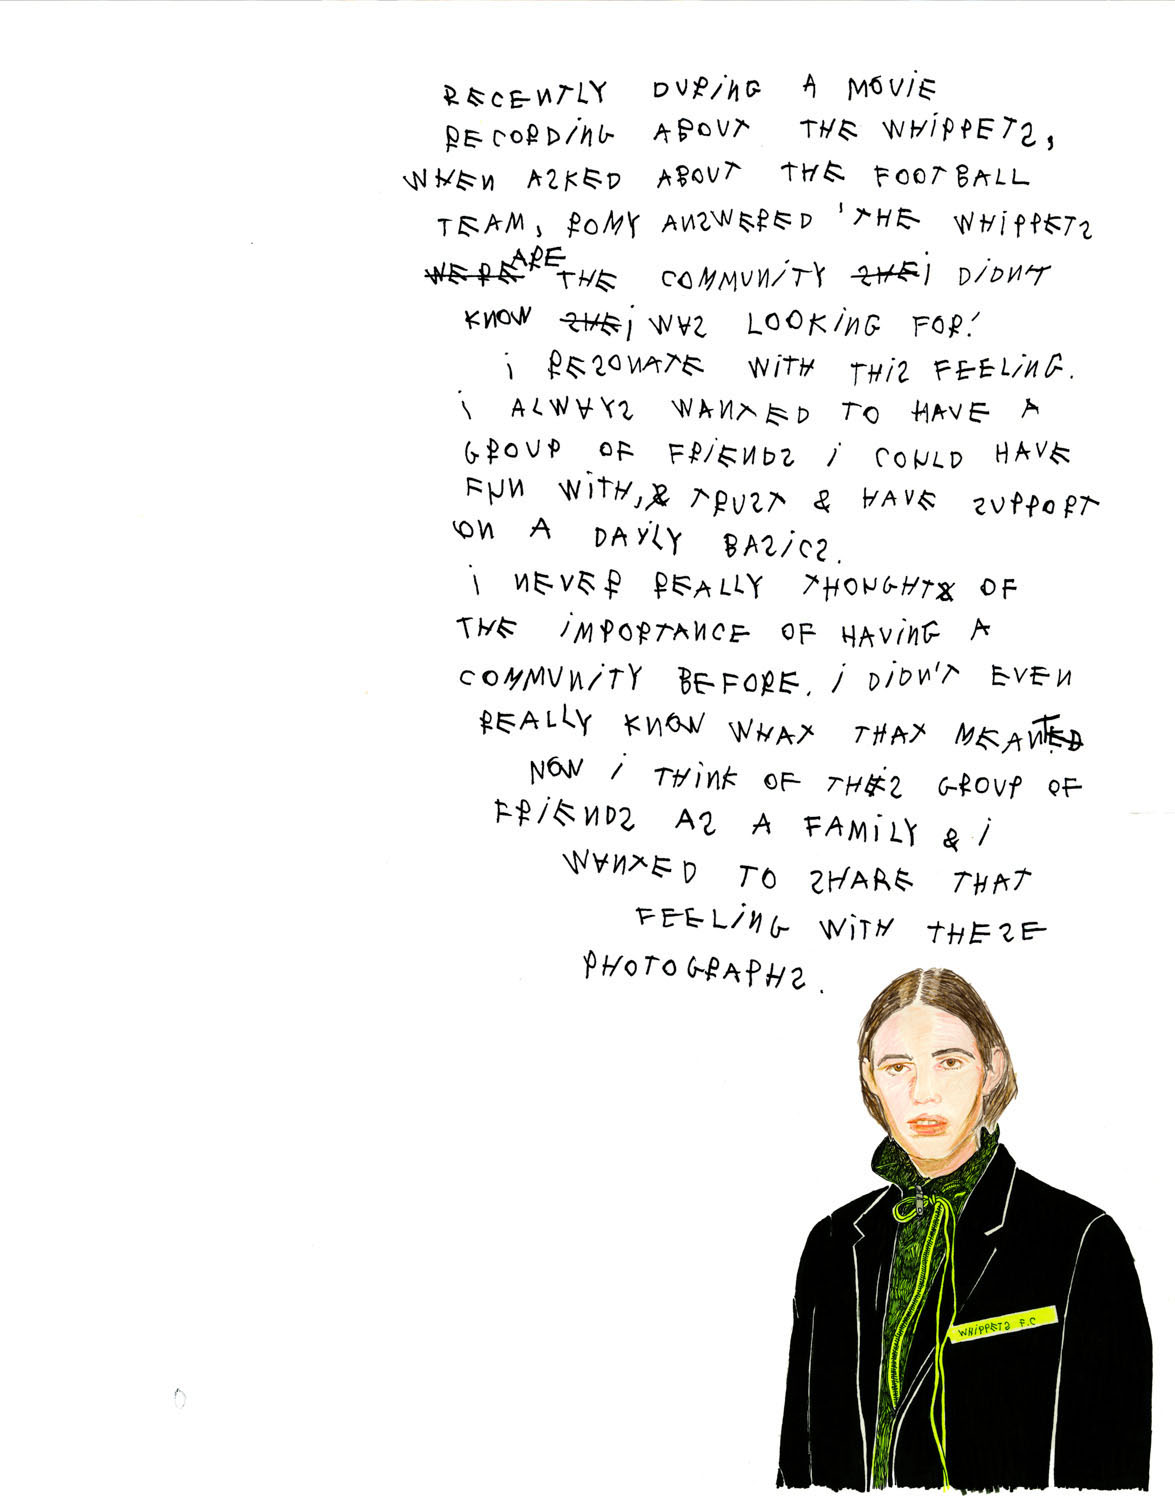 RECENTLY DURiNG A MOViE
RECORDiNG ABOUT THE WHiPPETS,
WHEN ASKED ABOUT THE FOOTBALL
TEAM, ROMY ANSWERED 'THE WHiPPETS
WERE ARE THE COMMUNiTY SHE i DiDNT
KNOW SHE i WAS LOOKiNG FOR.'
i RESONATE WiTH THiS FEELiNG.
i ALWAYS WANTED TO HAVE A
GROUP OF FRiENDS i COULD HAVE
FUN WiTH, & TRUST & HAVE SUPPORT
ON A DAYLY BASiCS.
i NEVER REALLY THOUGHT OF
THE iMPORTANCE OF HAViNG A
COMMUNiTY BEFORE. i DiDN'T EVEN
REALLY KNOW WHAT THAT MEANTED
NOW i THiNK OF THiS GROUP OF
FRiENDS AS A FAMiLY & i
WANTED TO SHARE THAT
FEELiNG WiTH THESE
PHOTOGRAPHS.
WHiPPETS F.C